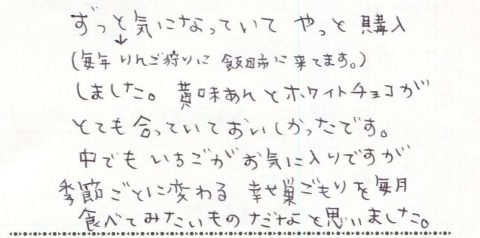 ずっと気になっていて やっと購入
(毎年りんご狩りに 飯田市に来てます。)
しました。黄味あんとホワイトチョコが
とても合っていておいしかったです。
中でもいちごがお気に入りですが
季節ごとに変わる 幸せ巣ごもりを毎月
食べてみたいものだなと思いました。